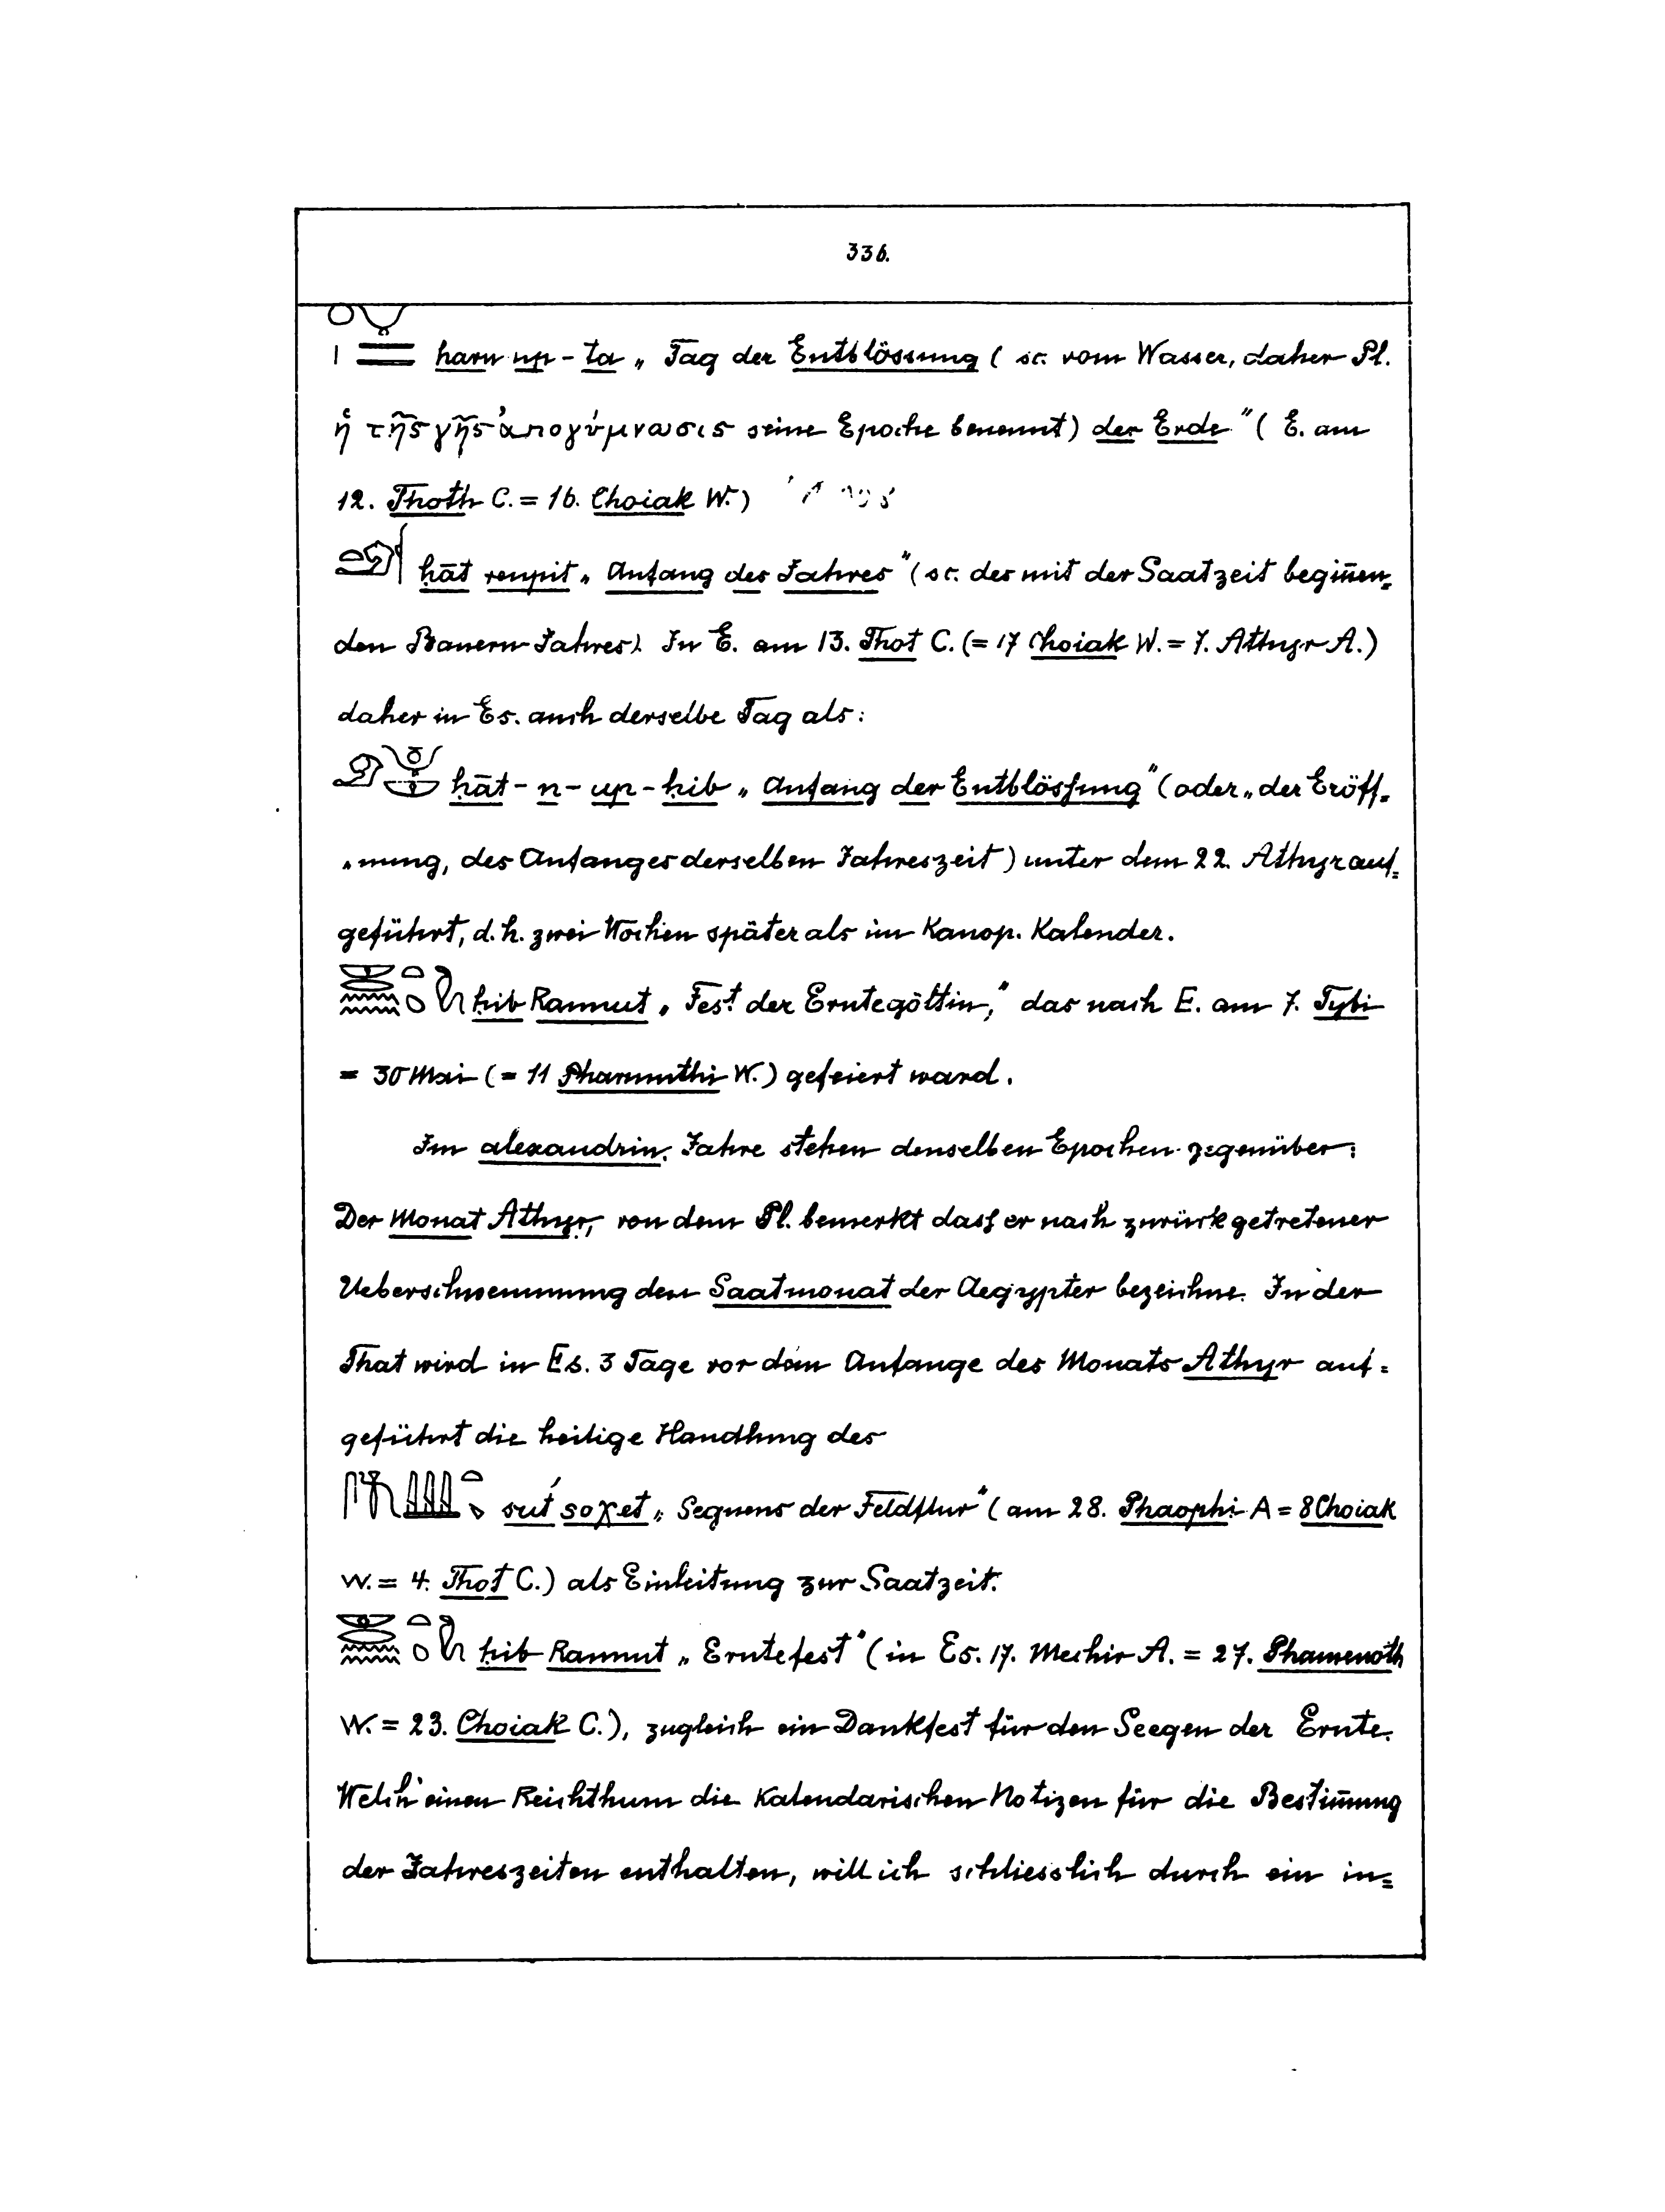 336.
haru up-ta „Tag der Entblössung (sc. vom Wasser, daher Pl.
ἡ τῆς γῆς ἀπογύμνωσις seine Epoche benennt) der Erde" (E. am
12. Thoth C. = 16. Choiak W.)
ḥāt renpit „Anfang des Jahres" (sc. des mit der Saatzeit begin̅en=
den Bauern-Jahres). In E. am 13. Thot C. (= 17 Choiak W. = 7. Athyr A.)
daher in Es. auch derselbe Tag als:
ḥāt-n-up-ḥib „Anfang der Entblösſung" (oder „der Eröff=
„nung, des Anfanges derselben Jahreszeit) unter dem 22. Athyr auf=
geführt, d.h. zwei Wochen später als im Kanop. Kalender.
ḥib Rannut „Fest der Erntegöttin," das nach E. am 7. Tybi
= 30 Mai (= 11 Pharmuthi W.) gefeiert ward.
Im alexandrin. Jahre stehen denselben Epochen gegenüber:
Der Monat Athyr, von dem Pl. bemerkt dasſ er nach zurückgetretener
Ueberschwemmung den Saatmonat der Aegypter bezeichne. In der
That wird in Es. 3 Tage vor dem Anfange des Monats Athyr auf=
geführt die heilige Handlung des
suť soχet „Segnens der Feldflur" (am 28. Phaophi A = 8 Choiak
W. = 4. Thot C.) als Einleitung zur Saatzeit.
ḥib Rannut „Erntefest" (in Es. 17. Mechir A. = 27. Phamenoth
W. = 23. Choiak C.), zugleich ein Dankfest für den Seegen der Ernte.
Welch' einen Reichthum die Kalendarischen Notizen für die Bestim̅ung
der Jahreszeiten enthalten, will ich schliesslich durch ein in=